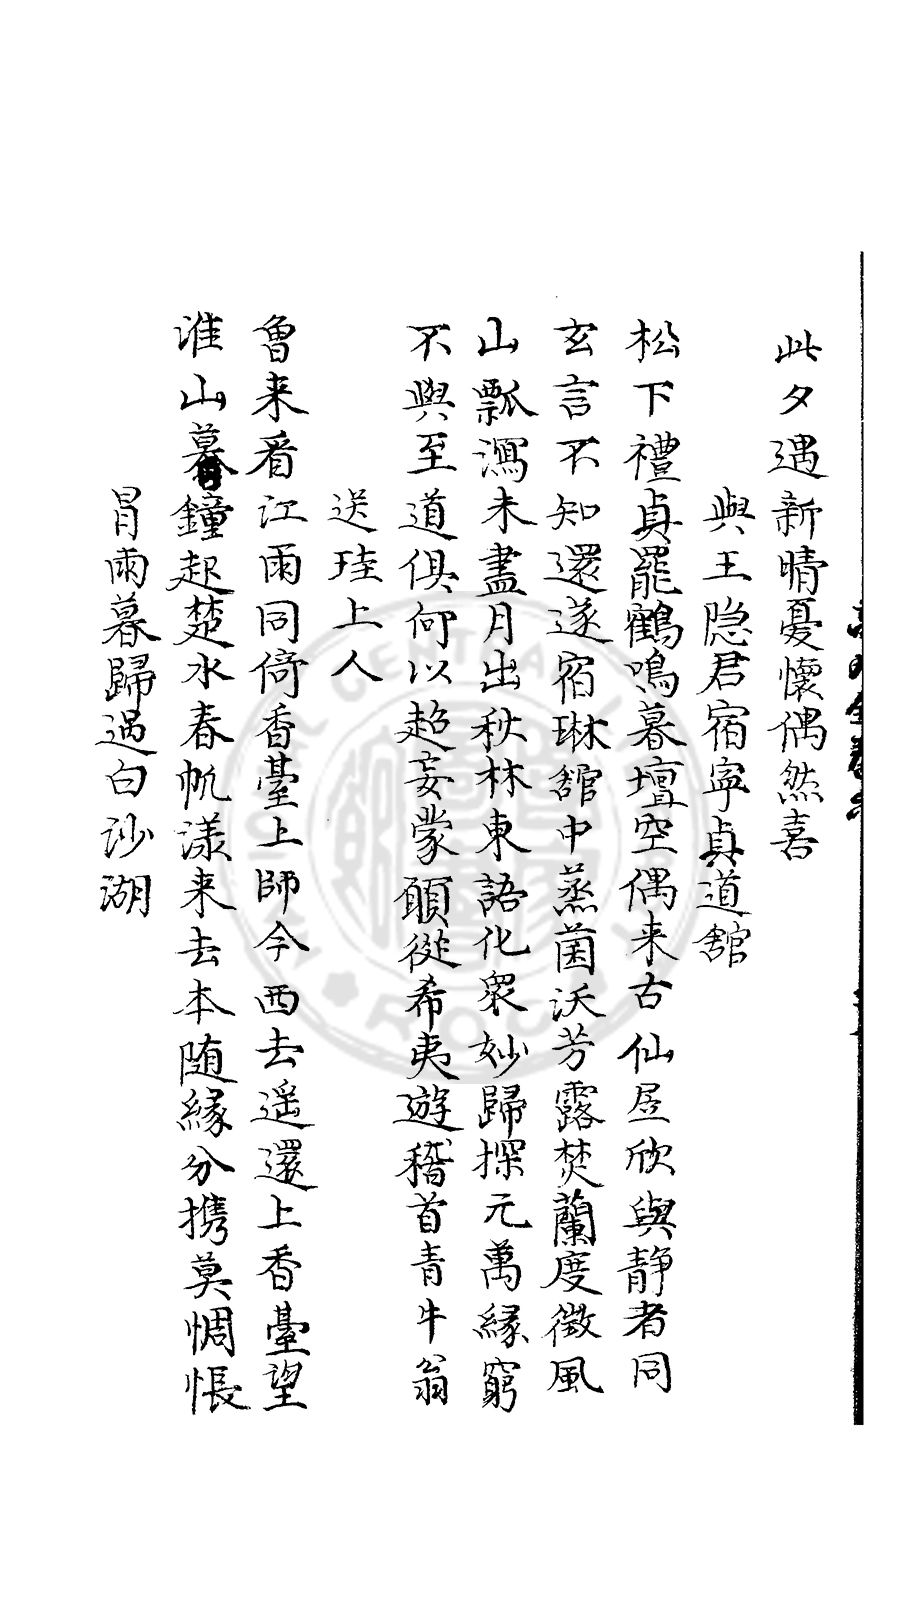 此夕遇新晴憂懷偶然喜
與王隐君宿寜貞道舘
松下禮貞罷鶴鳴暮壇空偶来古仙居欣與静者同
玄言不知還遂宿琳舘中蒸菌沃芳露焚蘭度微風
山瓢瀉未盡月出秋林東語化衆妙歸探元萬縁窮
不與至道俱何以超妄蒙願從希夷遊稽首青牛翁
送珪上人
魯来看江雨同倚香臺上師今西去遥還上香臺望
淮山暮鐘起楚水春帆漾来去本随縁分携莫惆悵
冒雨暮歸過白沙湖
NATIONAL CENTRAL LIBRARY
R.O.C.